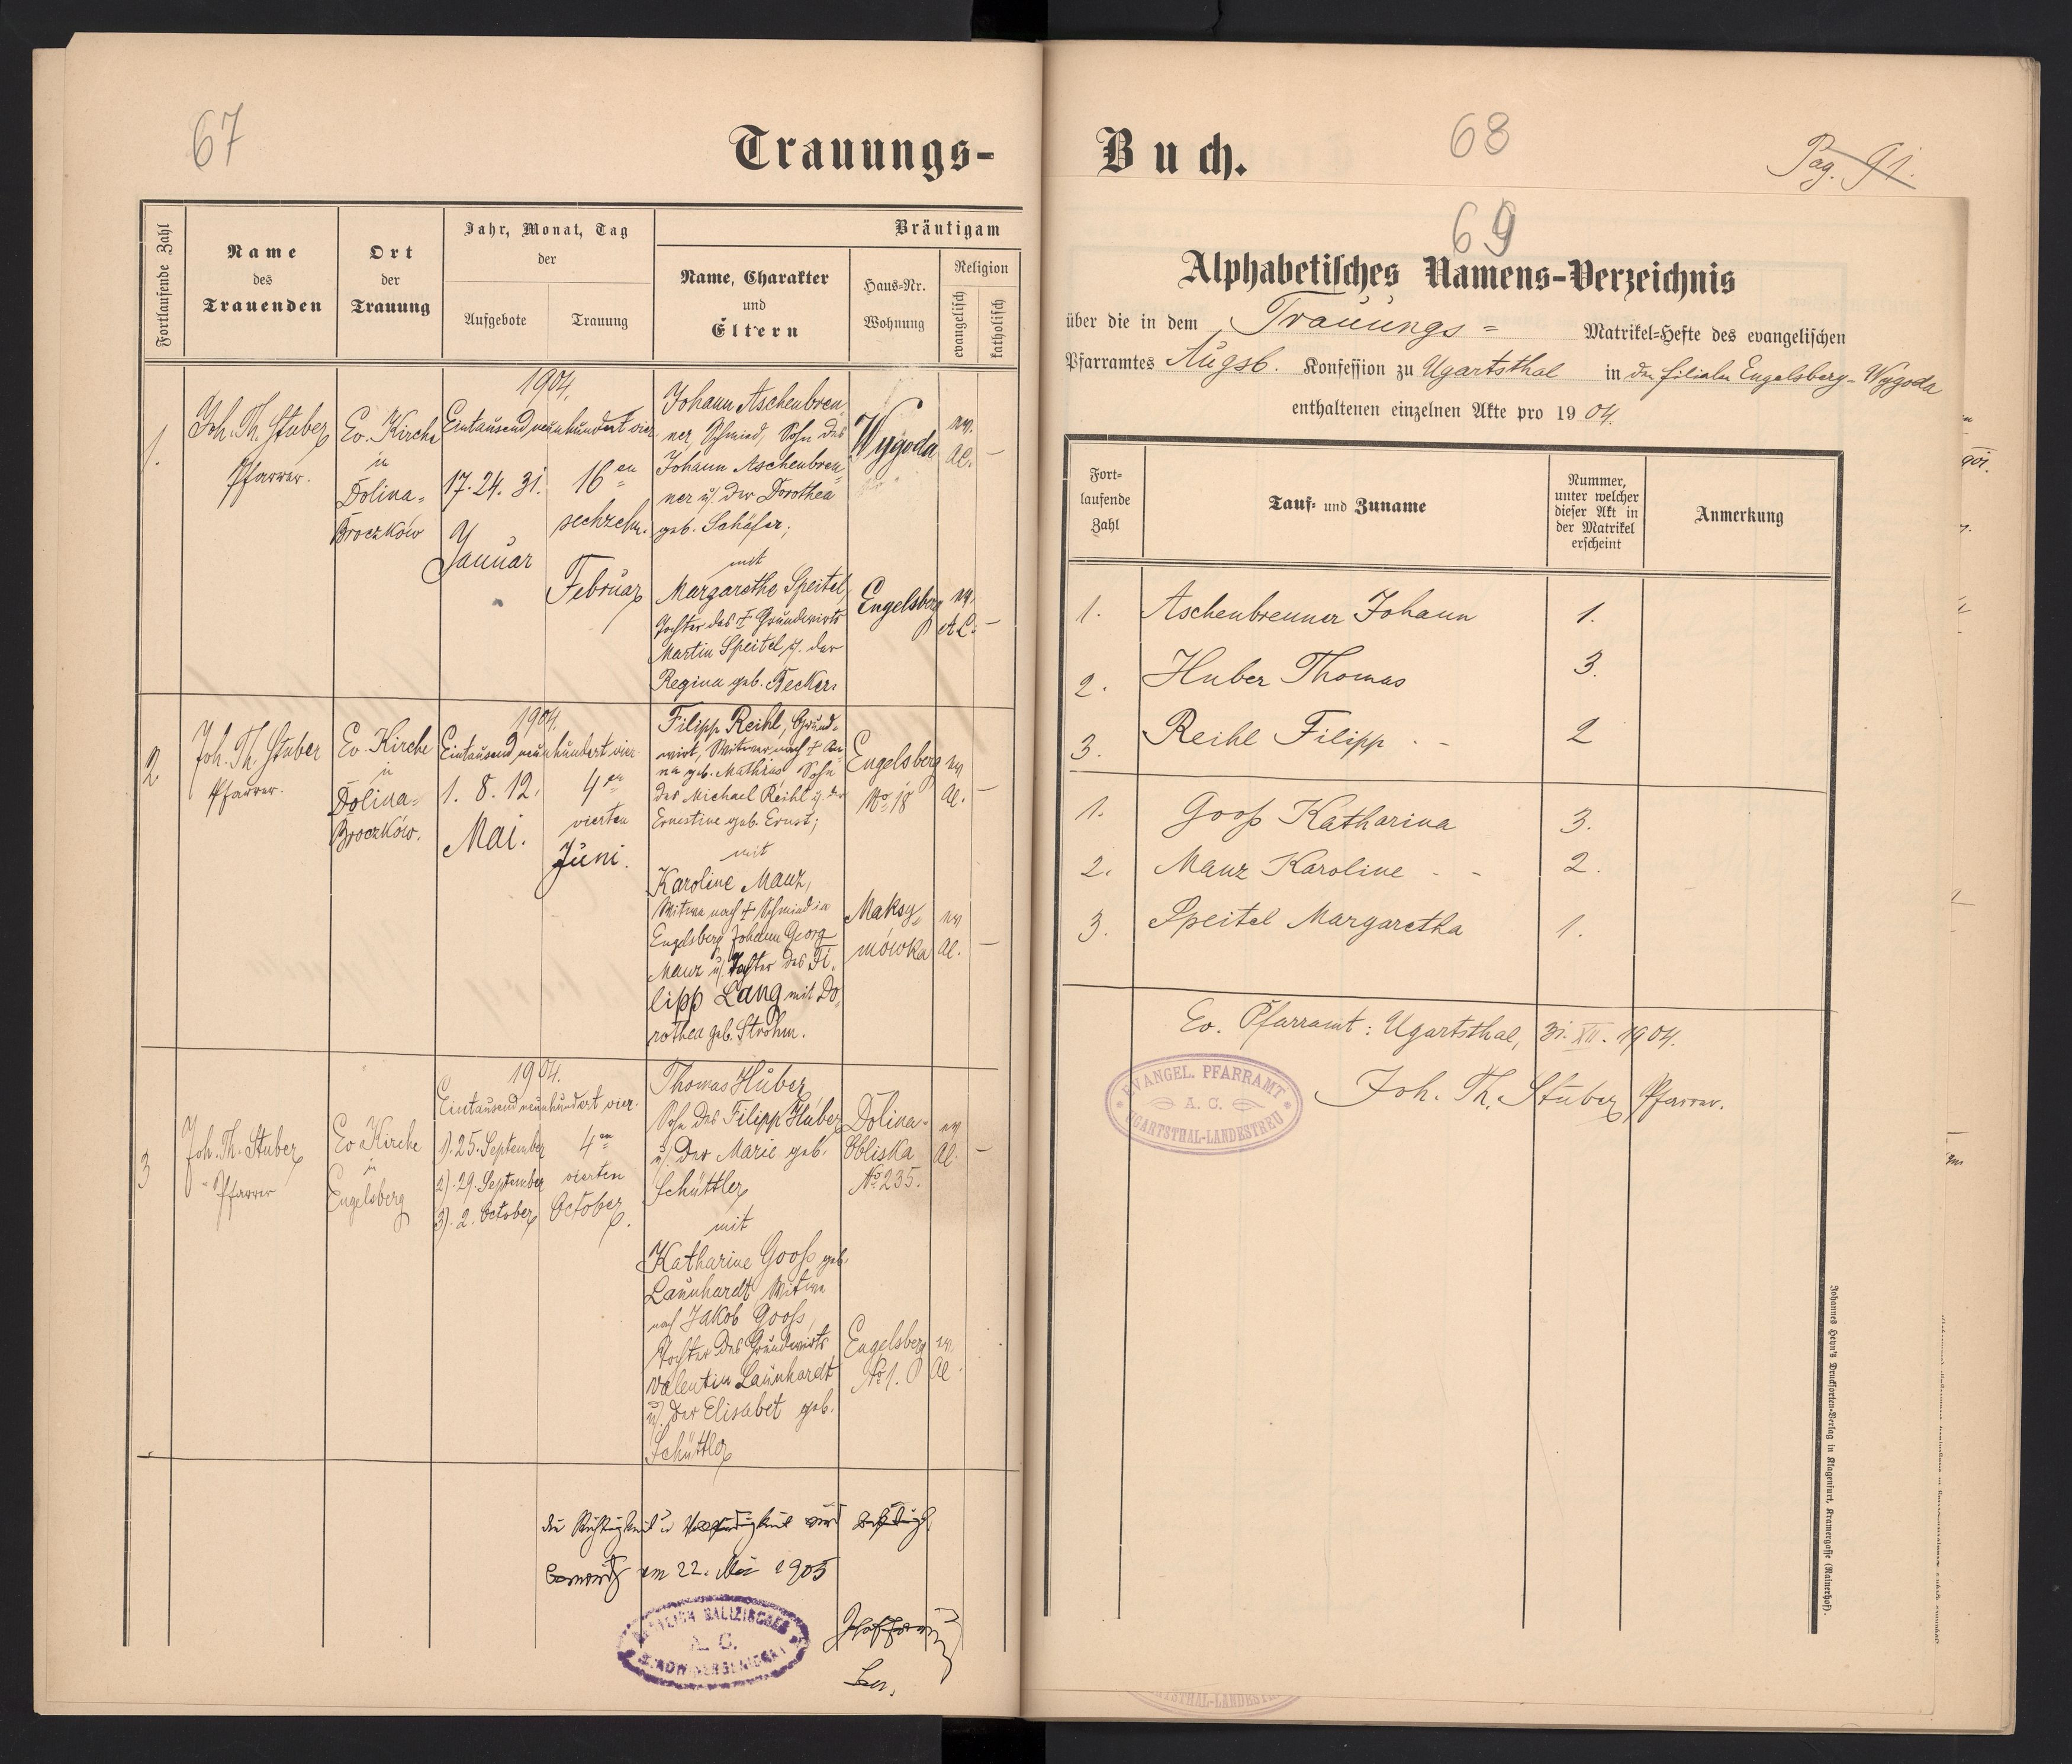 67
Trauungs-
Fortlaufende Zahl
Name
des
Trauenden
Ort
der
Trauung
Jahr, Monat, Tag
der
Aufgebote
Trauung
Bräutigam
Name, Charakter
und
Eltern
Haus-Nr.
Wohnung
Religion
evangelisch
katholisch
1.
Joh. Th. Stuber
Pfarrer.
Ev. Kirche
in
Dolina-
Broczków
1904.
Eintausend neunhundert vier
17. 24. 31.
Januar
16en
sechzehn.
Februar
Johann Aschenbren-
ner, Schmied, Sohn des
Johann Aschenbren-
ner u. der Dorothea
geb. Schäfer;
mit
Margarethe Speitel,
Tochter des † Grundwirts
Martin Speitel u. der
Regina geb. Becker.
Wygoda
ev.
AC.
–
Engelsberg
ev.
A.C.
–
2
Joh. Th. Stuber
Pfarrer.
Ev. Kirche
in
Dolina-
Broczków.
1904.
Eintausend neunhundert vier
1. 8. 12.
Mai.
4en
vierten
Juni.
Filipp Reihl, Grund-
wirt, Witwer nach † An-
na geb. Mathias Sohn
des Michael Reihl u. der
Ernestine geb. Ernst;
mit
Karoline Manz,
Witwe nach † Schmied in
Engelsberg Johann Georg
Manz u. Tochter des Fi-
lipp Lang mit Do-
rothea geb. Strohm.
Engelsberg
No 18
ev
AC.
–
Maksy-
mówka
ev
AC.
–
3
Joh. Th. Stuber
Pfarrer
Ev. Kirche
in
Engelsberg
1904.
Eintausend neunhundert vier.
1). 25. September
2). 29. September
3). 2. October
4en
vierten
October.
Thomas Huber
Sohn des Filipp Huber
u. der Marie geb.
Schüttler
mit
Katharine Gooß geb.
Launhardt Witwe
nach Jakob Gooß,
Tochter des Grundwirts
Valentin Launhardt
u. der Elisabet geb.
Schüttler
Dolina-
Obliska
No 235.
ev
AC.
–
Engelsberg
No 1.
ev
AC.
die Richtigkeit u. Vollständigkeit wird bestätigt
am 22. Mai 1905
A. C.
Buch.
68
Pag. 91.
69
Alphabetisches Namens-Verzeichnis
über die in dem Trauungs= Matrikel-Hefte des evangelischen
Pfarramtes Augsb. Konfession zu Ugartsthal in den Filialen Engelsberg-Wygoda
enthaltenen einzelnen Akte pro 1904.
Fort-
laufende
Zahl
Tauf- und Zuname
Nummer,
unter welcher
dieser Akt in
der Matrikel
erscheint
Anmerkung
1. Aschenbrenner Johann 1.
2. Huber Thomas 3.
3. Reihl Filipp . - 2
1. Gooß Katharina 3.
2. Manz Karoline - - 2.
3. Speitel Margaretha 1.
Ev. Pfarramt: Ugartsthal, 31. XII. 1904.
EVANGEL. PFARRAMT
A. C.
UGARTSTHAL-LANDESTREU
Joh. Th. Stuber Pfarrer.
Johannes Heyn's Drucksorten-Verlag in Klagenfurt, Kramergasse (Rainerhof).